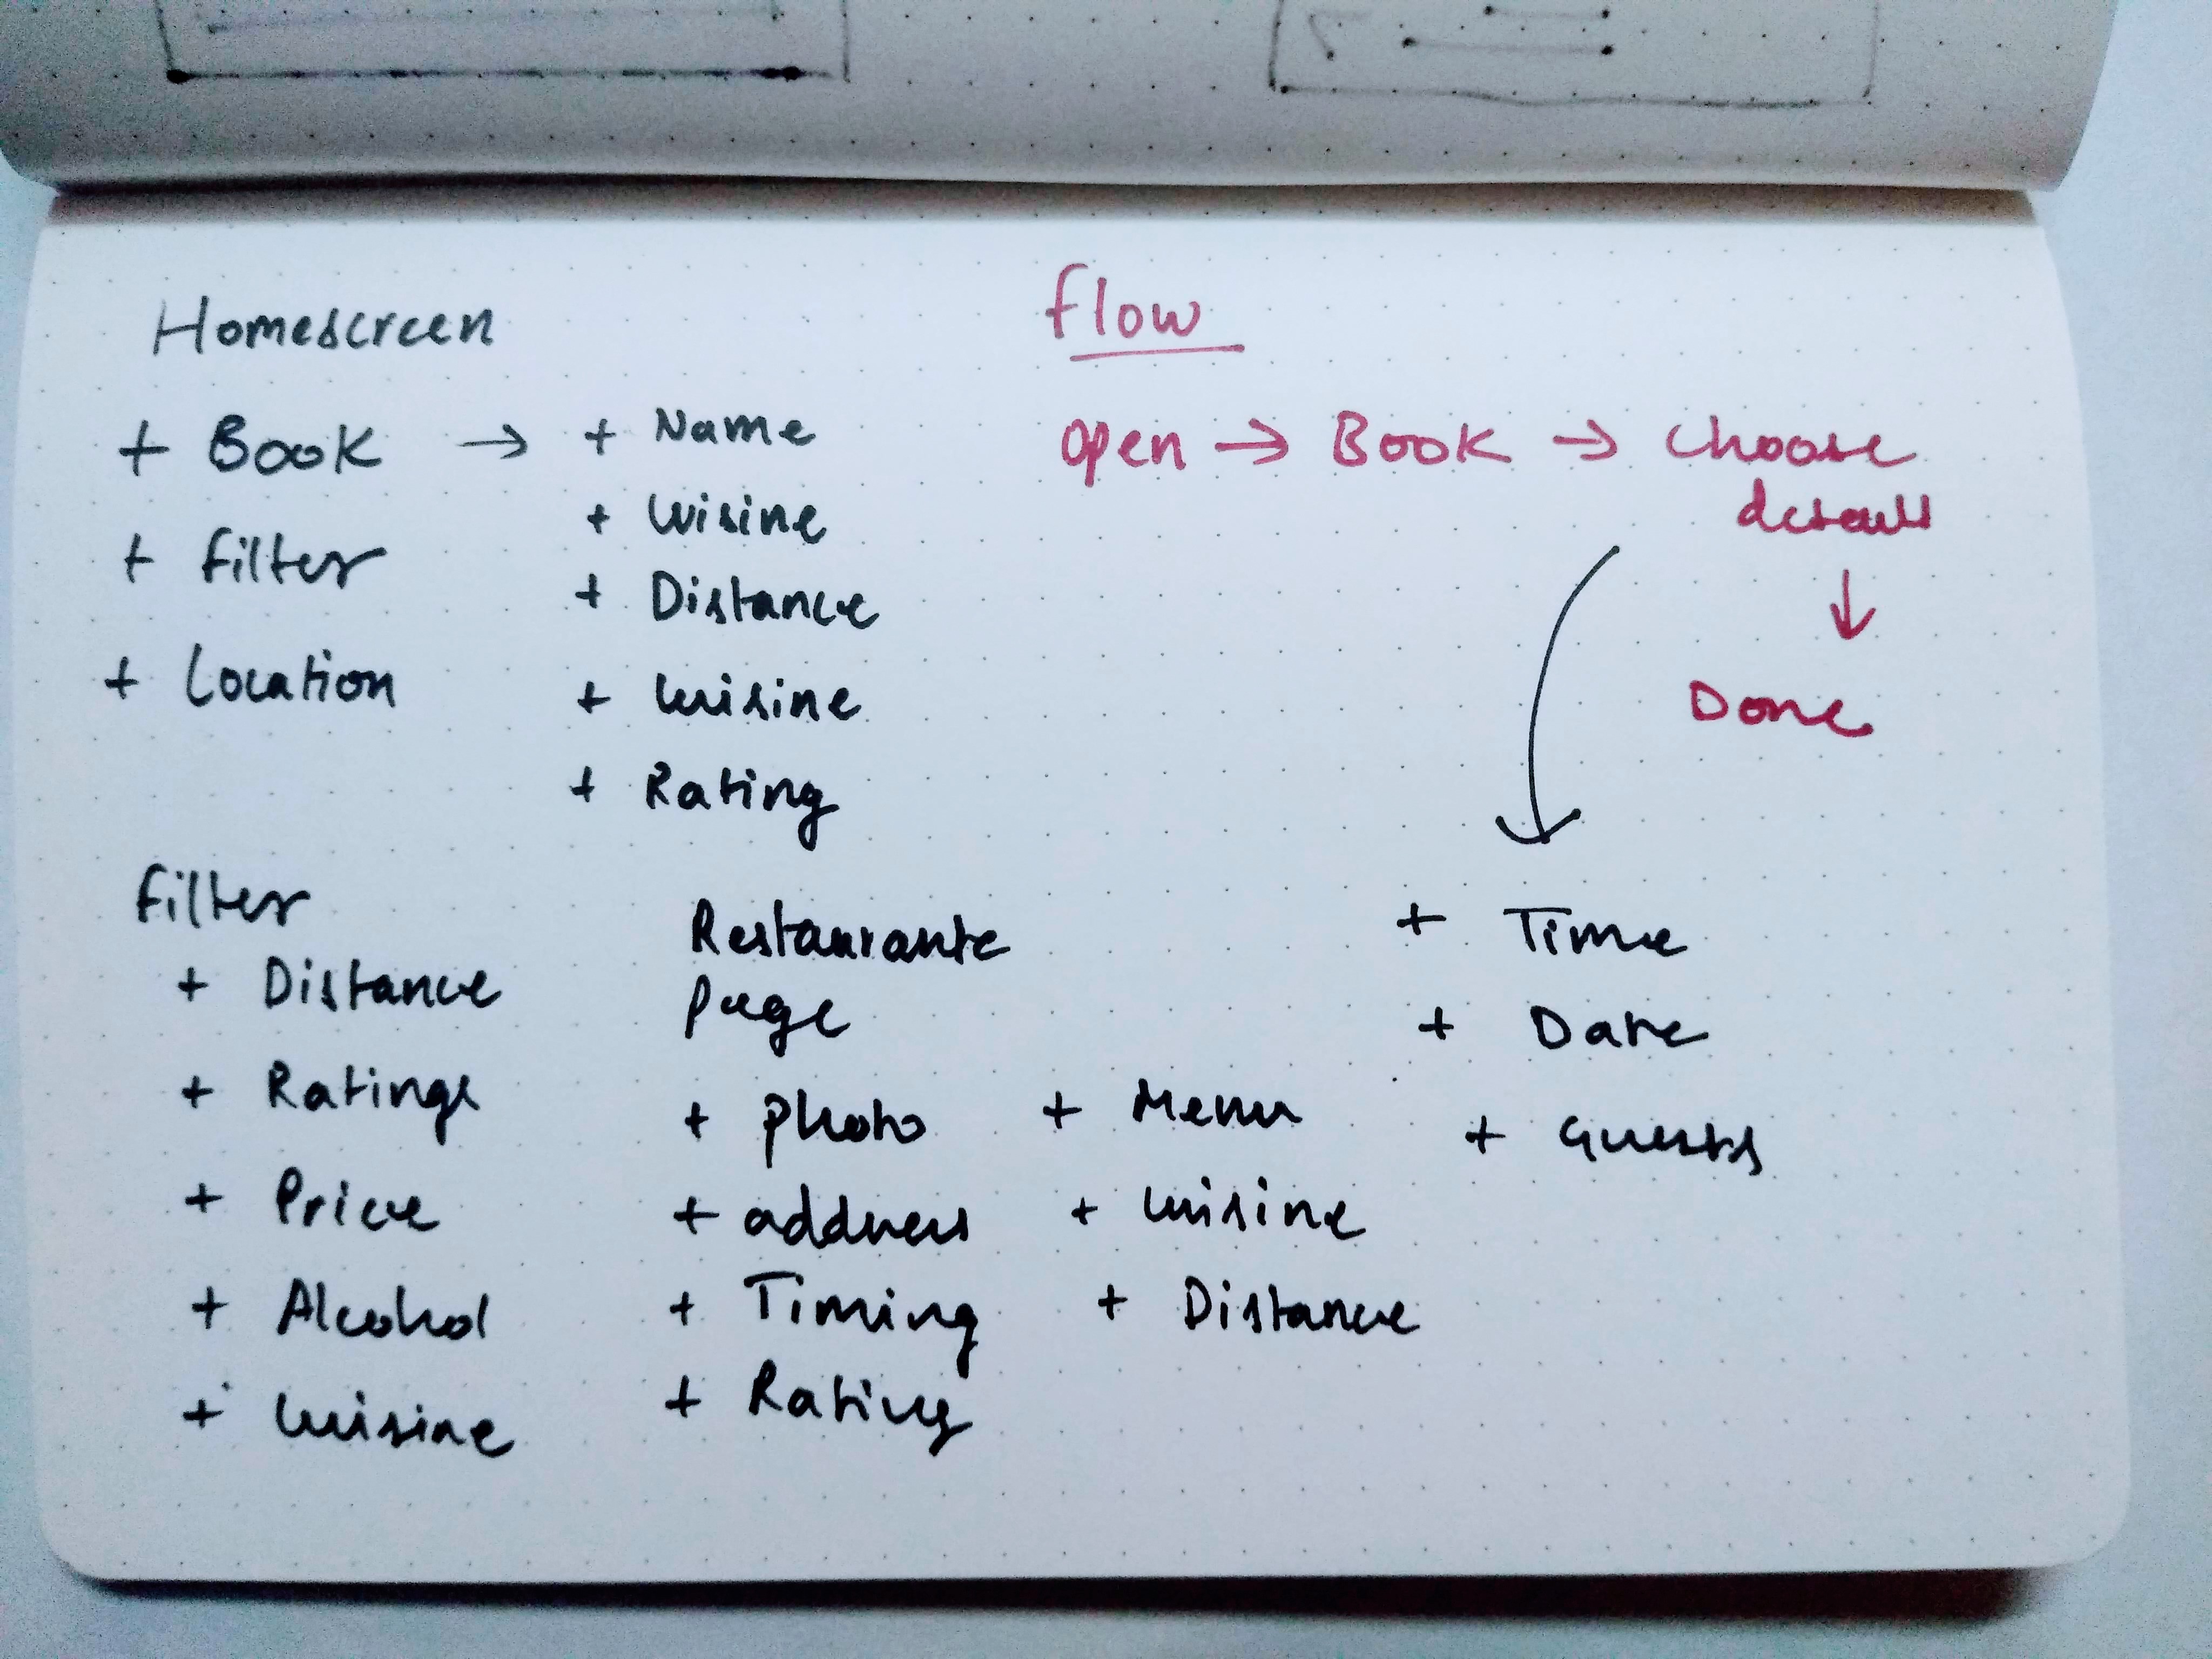 Homescreen
+ Book → + Name
+ Cuisine
+ Filter
+ Distance
+ Location
+ Cuisine
+ Rating
Flow
Open → Book → Choose
details
↓
Done
+ Time
+ Date
+ Guests
Filter
+ Distance
+ Ratings
+ Price
+ Alcohol
+ Cuisine
Restaurante
Page
+ Photo
+ address
+ Timing
+ Rating
+ Menu
+ Cuisine
+ Distance